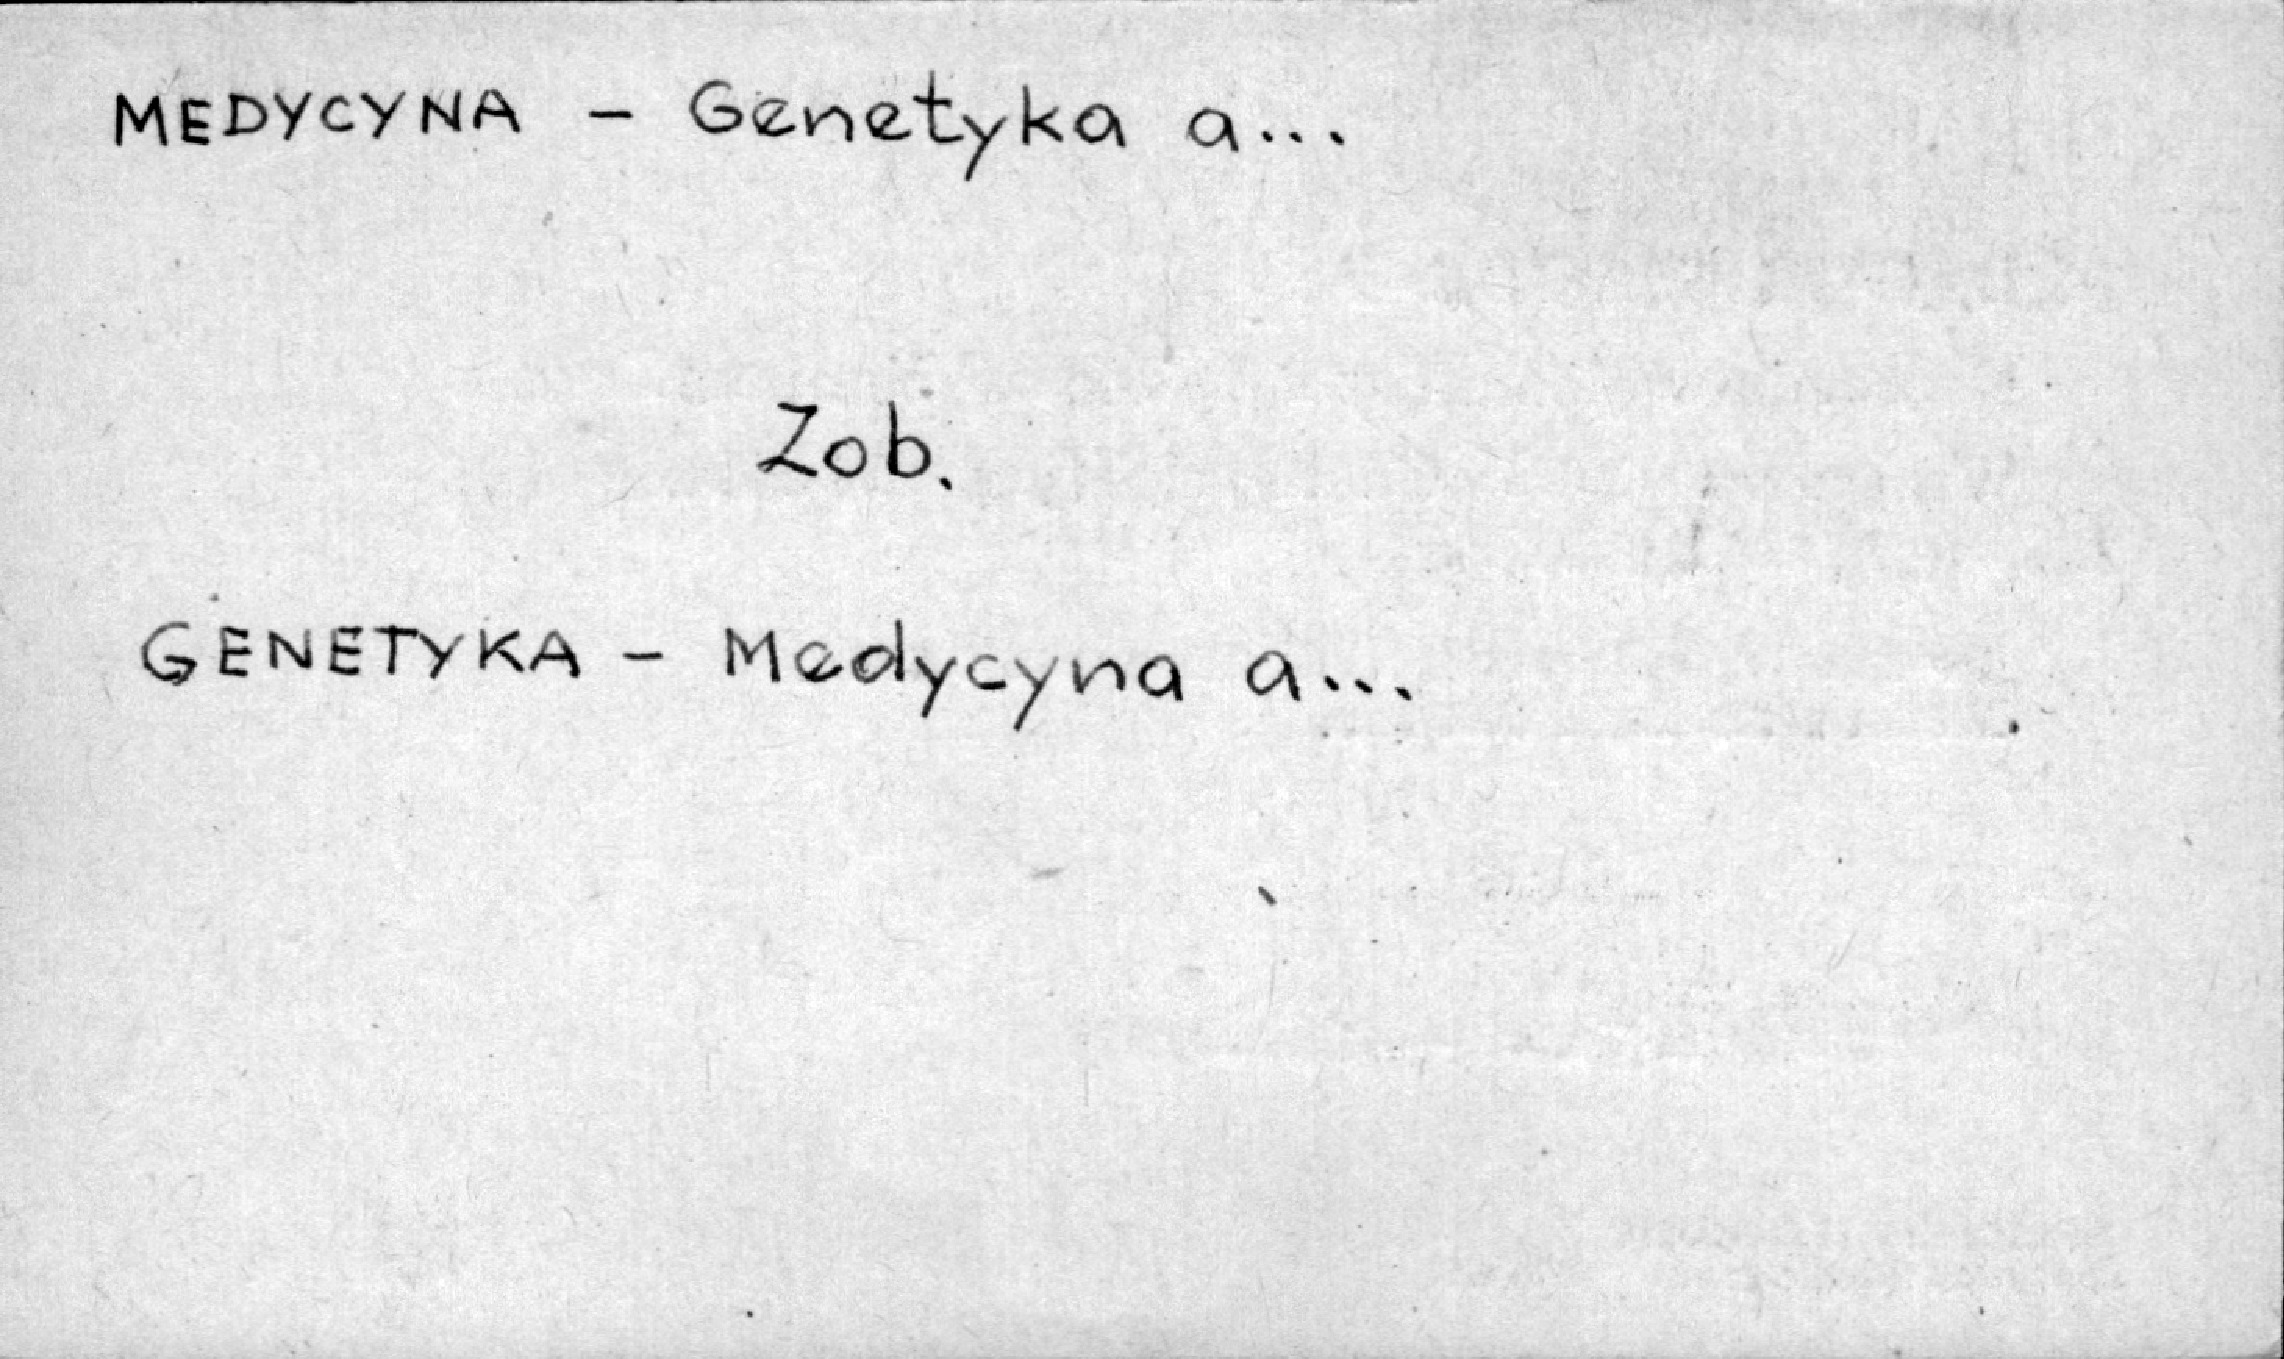 MEDYCYNA - Genetyka a...
Zob.
GENETYKA - Medycyna a...